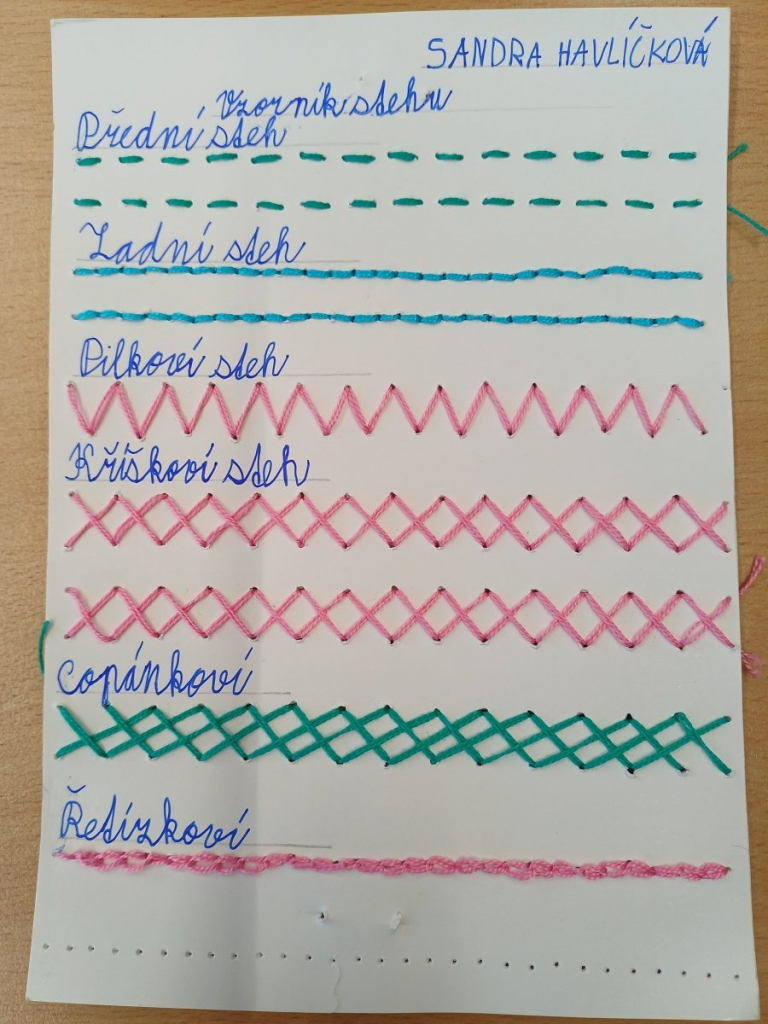 SANDRA HAVLÍČKOVÁ
Vzorník stehu
Přední steh
Zadní steh
Pilkoví steh
Kříškoví steh
copánkoví
Řetízkoví